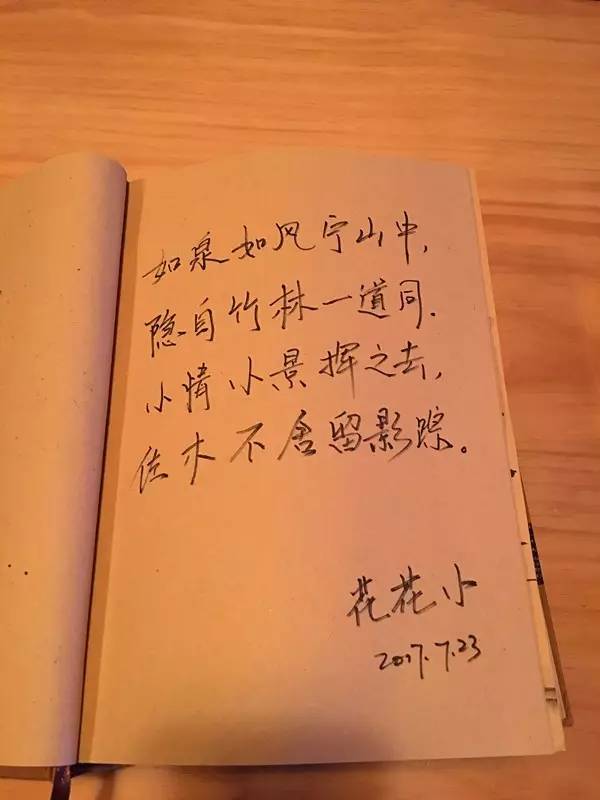 如泉如风宁山中,
隐自竹林一道同.
小情小景挥之去,
佐木不舍留影踪。
花花小
2017.7.23